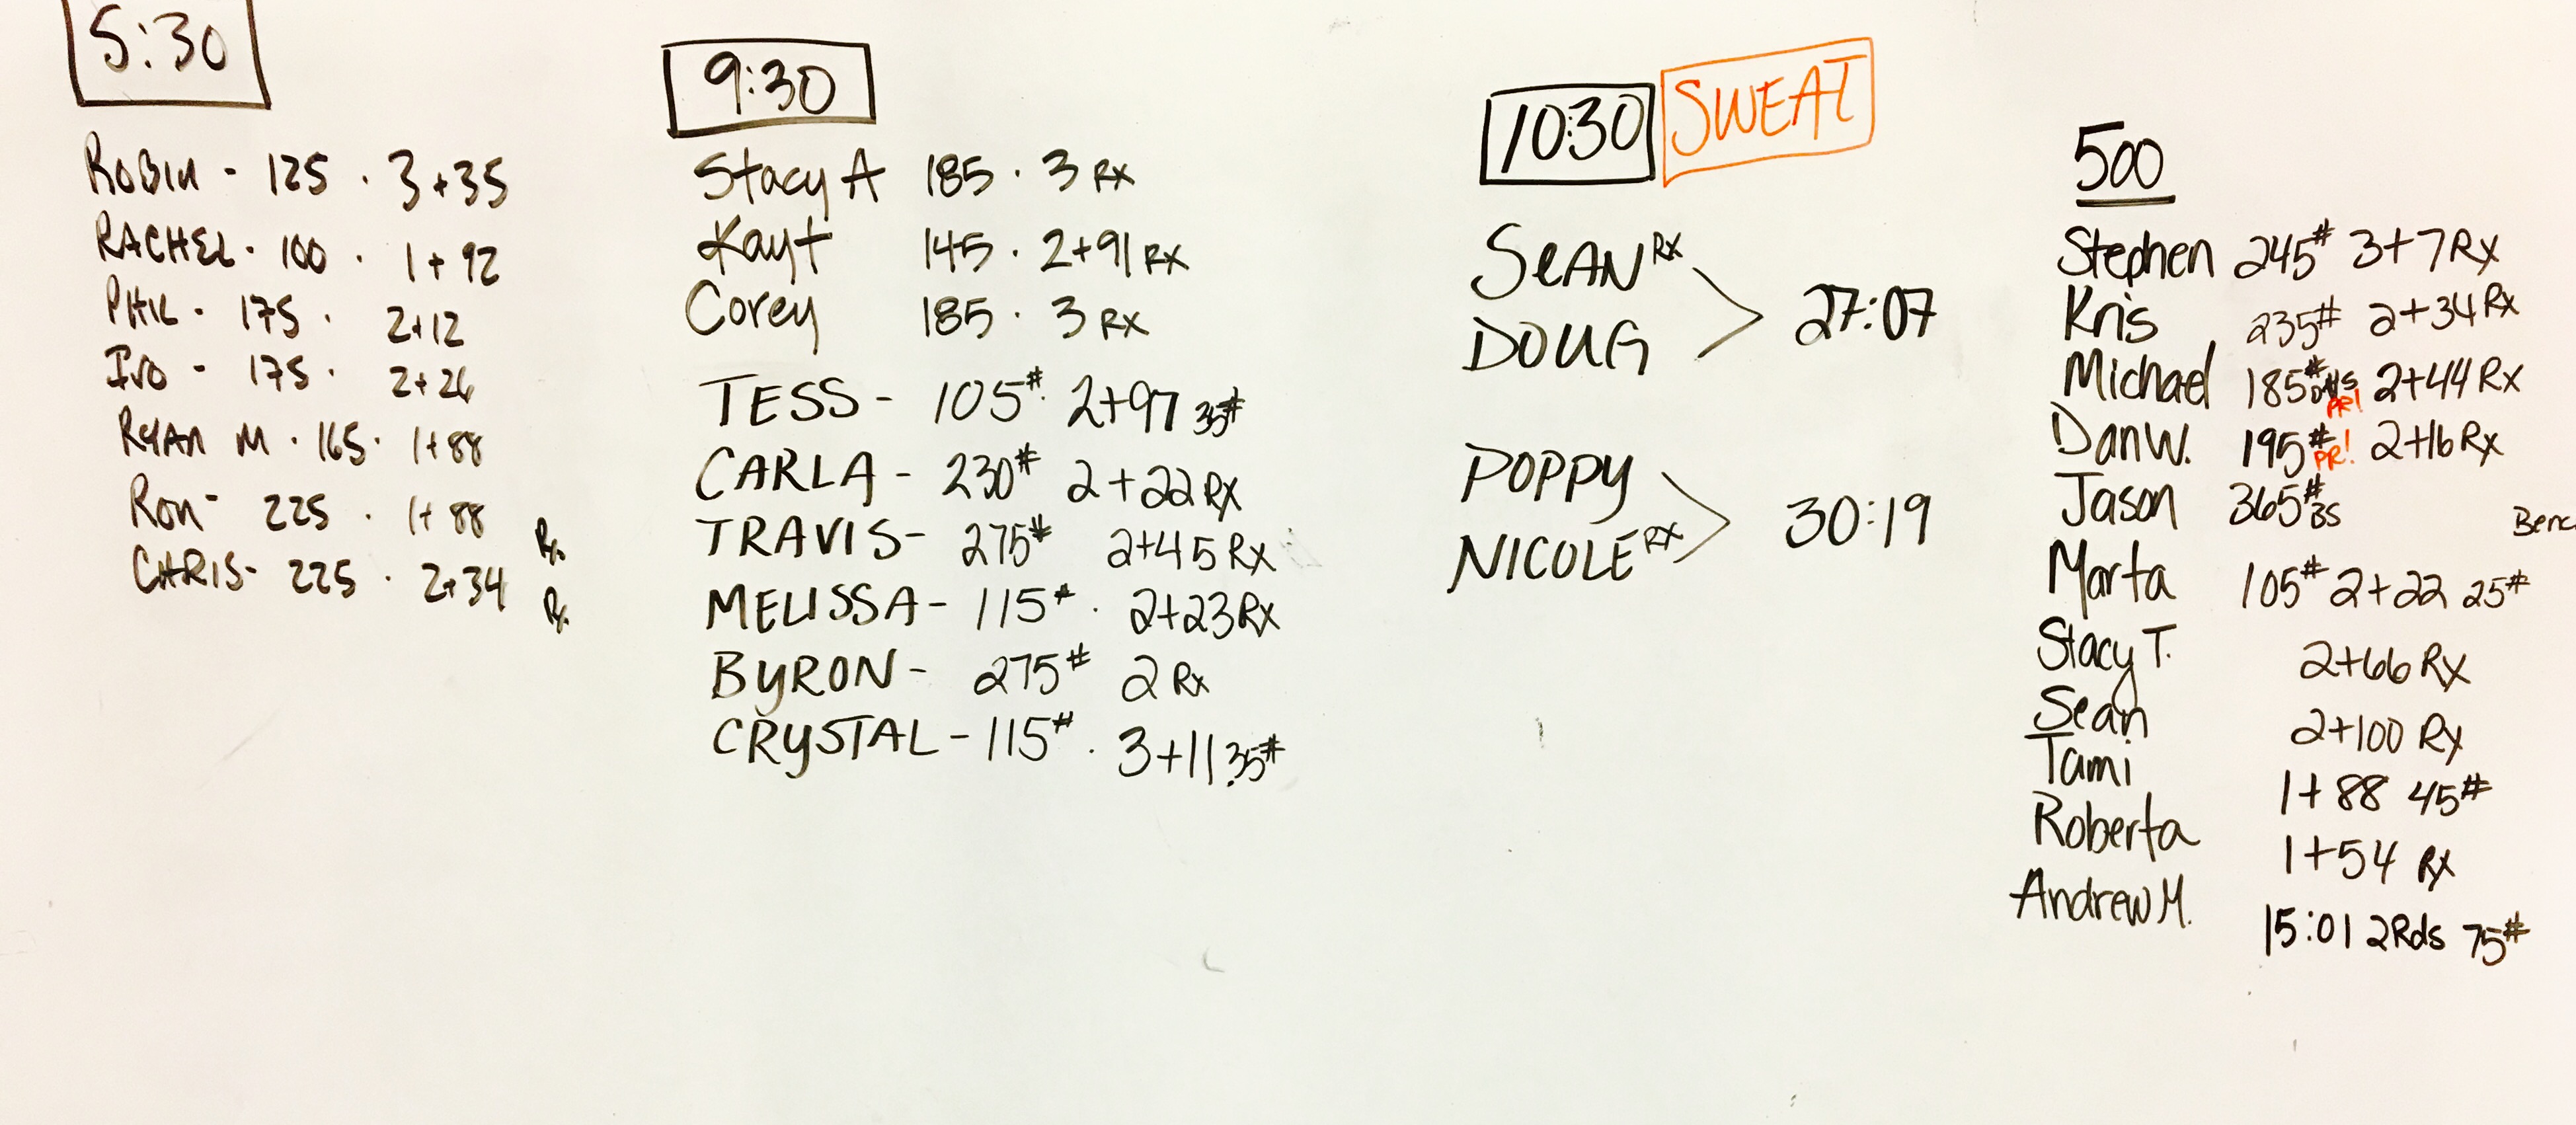 5:30
ROBIN - 125 · 3+35
RACHEL · 100 · 1+92
PHIL · 175 · 2+12
IVO - 175 · 2+26
RYAN M · 165 · 1+88
RON - 225 · 1+88 Rx
CHRIS - 225 · 2+34 Rx
9:30
Stacy A 185 · 3 Rx
Kayt 145 · 2+91 Rx
Corey 185 · 3 Rx
TESS - 105# 2+97 35#
CARLA - 230# 2+22 Rx
TRAVIS - 275# 2+45 Rx
MELISSA - 115# · 2+23 Rx
BYRON - 275# 2 Rx
CRYSTAL - 115# · 3+11 35#
10:30 SWEAT
SEAN RX
DOUG
27:07
POPPY
NICOLE RX
30:19
500
Stephen 245# 3+7 Rx
Kris 235# 2+34 Rx
Michael 185# 2+44 Rx
PR!
Dan W. 195# PR! 2+16 Rx
Jason 365# BS
Benc
Marta 105# 2+22 25#
Stacy T. 2+66 Rx
Sean 2+100 Rx
Tami 1+88 45#
Roberta 1+54 Rx
Andrew M. 15:01 2Rds 75#